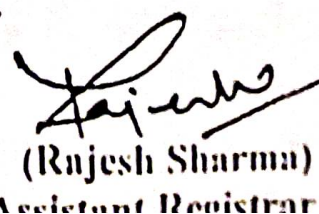 Rajesh
(Rajesh Sharma)
Assistant Registrar